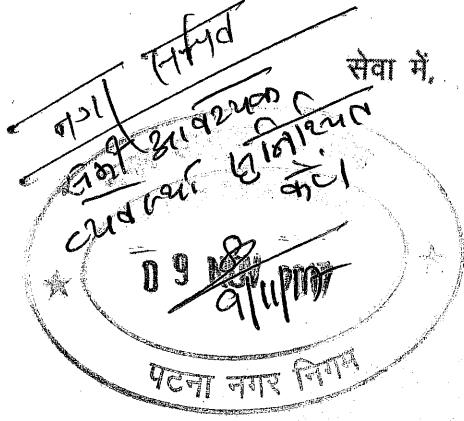 सेवा में,
नगर सचिव
सभी आवश्यक
व्यवस्था सुनिश्चित
करें।
09 NOV
9/11
पटना नगर निगम